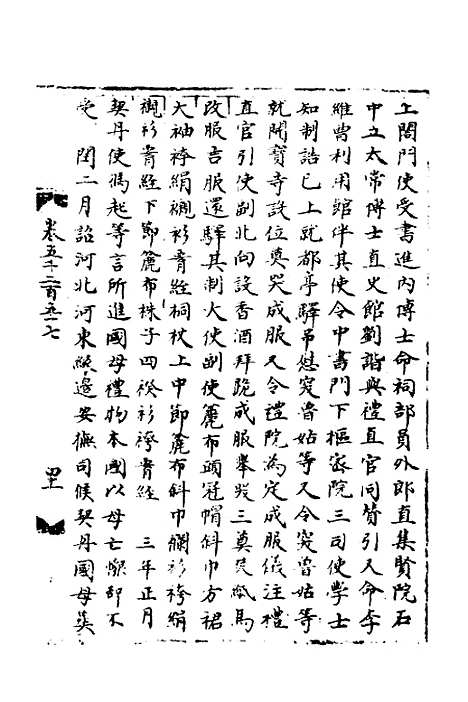 上閤門使受書進內博士命祠部員外郎直集賢院石
中立太常博士直史館劉鍇與禮直官同贊引又命李
維曹利用館伴其使令中書門下樞密院三司使學士
知制誥已上就都亭驛弔慰窊曾姑等又令窊曾姑等
就開寶寺設位奠哭成服又令禮院為定成服儀注禮
直官引使副北向設香酒拜跪成服舉哭三奠焚紙馬
改服吉服還驛其制大使副使麄布頭冠帽斜巾方裙
大袖袴絹襯衫首絰桐杖上中節麄布斜巾襴衫袴絹
襯衫首絰下節麄布株子四䙆衫袴首絰 三年正月
契丹使馮起等言所進國母禮物本國以母亡懈卻不
受 閏二月詔河北河東緣邊安撫司候契丹國母葬
卷五千二百五十七